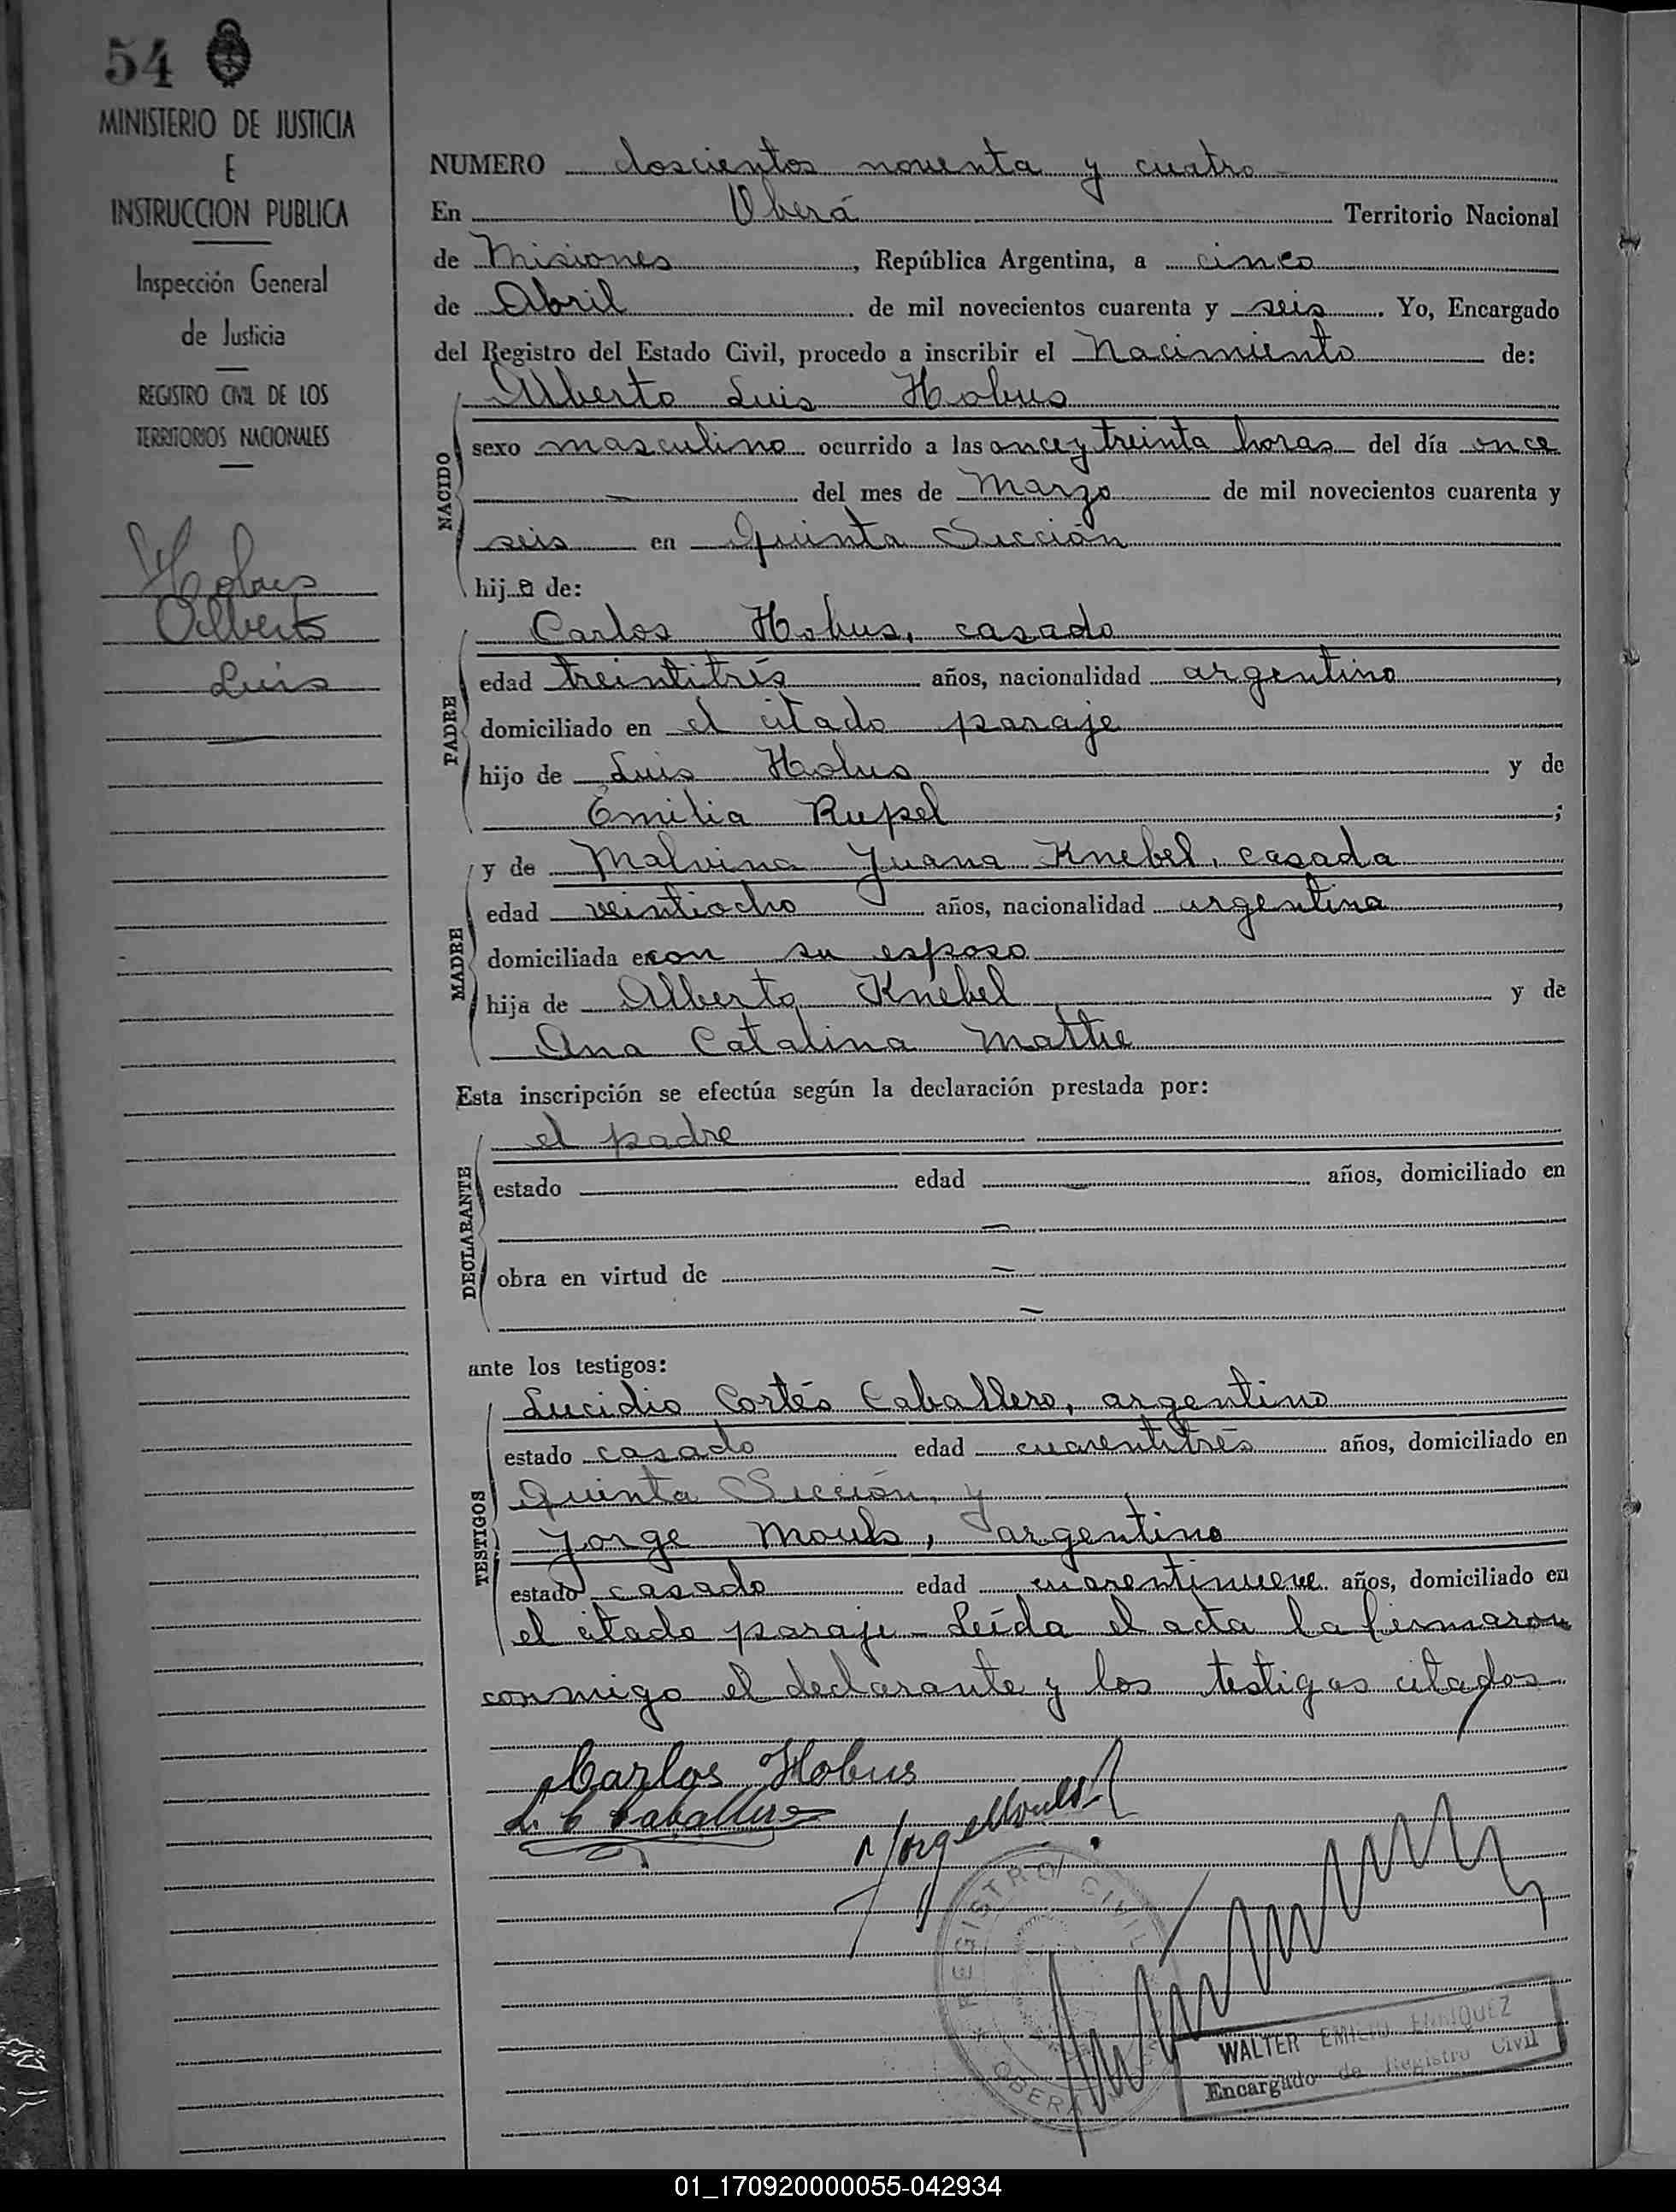 54
MINISTERIO DE JUSTICIA
E
INSTRUCCION PUBLICA
Inspección General
de Justicia
REGISTRO CIVIL DE LOS
TERRITORIOS NACIONALES
Hobus
Alberto
Luis
NUMERO doscientos noventa y cuatro
En Oberá Territorio Nacional
de Misiones, República Argentina, a cinco
de Abril de mil novecientos cuarenta y seis. Yo, Encargado
del Registro del Estado Civil, procedo a inscribir el Nacimiento de:
NACIDO
Alberto Luis Hobus
sexo masculino ocurrido a las once y treinta horas del día once
del mes de Marzo de mil novecientos cuarenta y
seis en Quinta Sección
hijo de:
PADRE
Carlos Hobus, casado
edad treintitrés años, nacionalidad argentino,
domiciliado en el citado paraje
hijo de Luis Hobus y de
Emilia Rupel;
MADRE
y de Malvina Juana Knebel, casada
edad veintiocho años, nacionalidad argentina,
domiciliada con su esposo
hija de Alberto Knebel y de
Ana Catalina Mattie
Esta inscripción se efectúa según la declaración prestada por:
DECLARANTE
el padre
estado edad años, domiciliado en
obra en virtud de
ante los testigos:
TESTIGOS
Lucidio Cortés Caballero, argentino
estado casado edad cuarentitrés años, domiciliado en
Quinta Sección y
Jorge Mouls, argentino
estado casado edad cuarentinueve años, domiciliado en
el citado paraje - Leída el acta la firmaron
conmigo el declarante y los testigos citados
Carlos Hobus
L. C. Caballero
Jorge Mouls
REGISTRO CIVIL
OBERA
WALTER EMILIO ENRIQUEZ
Encargado de Registro Civil
01_170920000055-042934